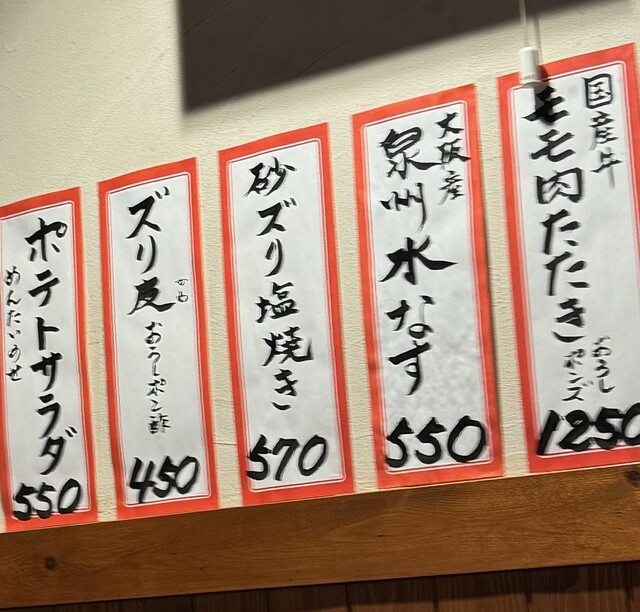 国産牛
モモ肉たたき
おろし
ポンズ
1250
大阪産
泉州水なす
550
砂ズリ塩焼き
570
ズリ皮
おろしポン酢
450
ポテトサラダ
めんたいのせ
550